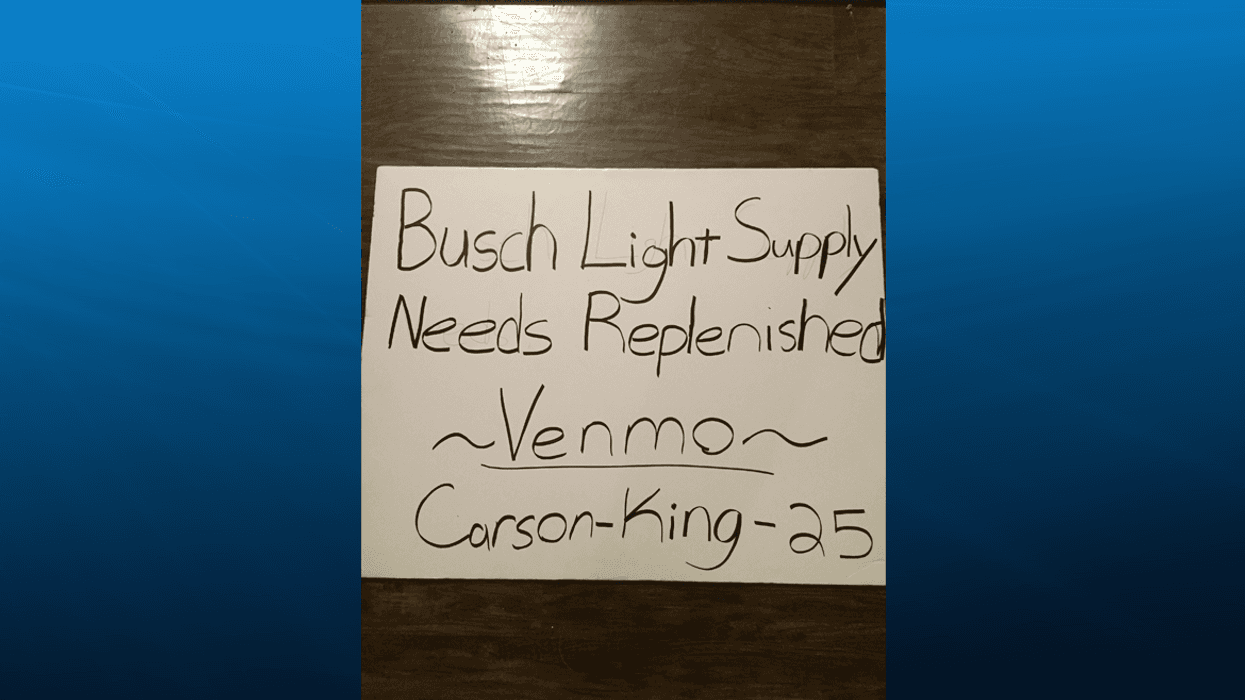 Busch Light Supply
Needs Replenished
~Venmo~
Carson-King-25